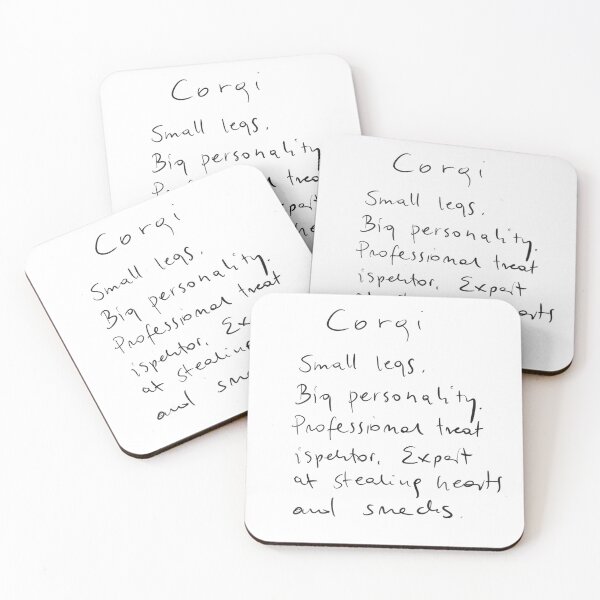 Corgi
Small legs.
Big personality
Corgi
Small legs.
Big personality.
Professional treat
ispektor. Expert
Corgi
Small legs.
Big personality.
Professional treat
ispektor.
at stealing
and
Corgi
Small legs.
Big personality.
Professional treat
ispektor. Expert
at stealing hearts
and snacks.